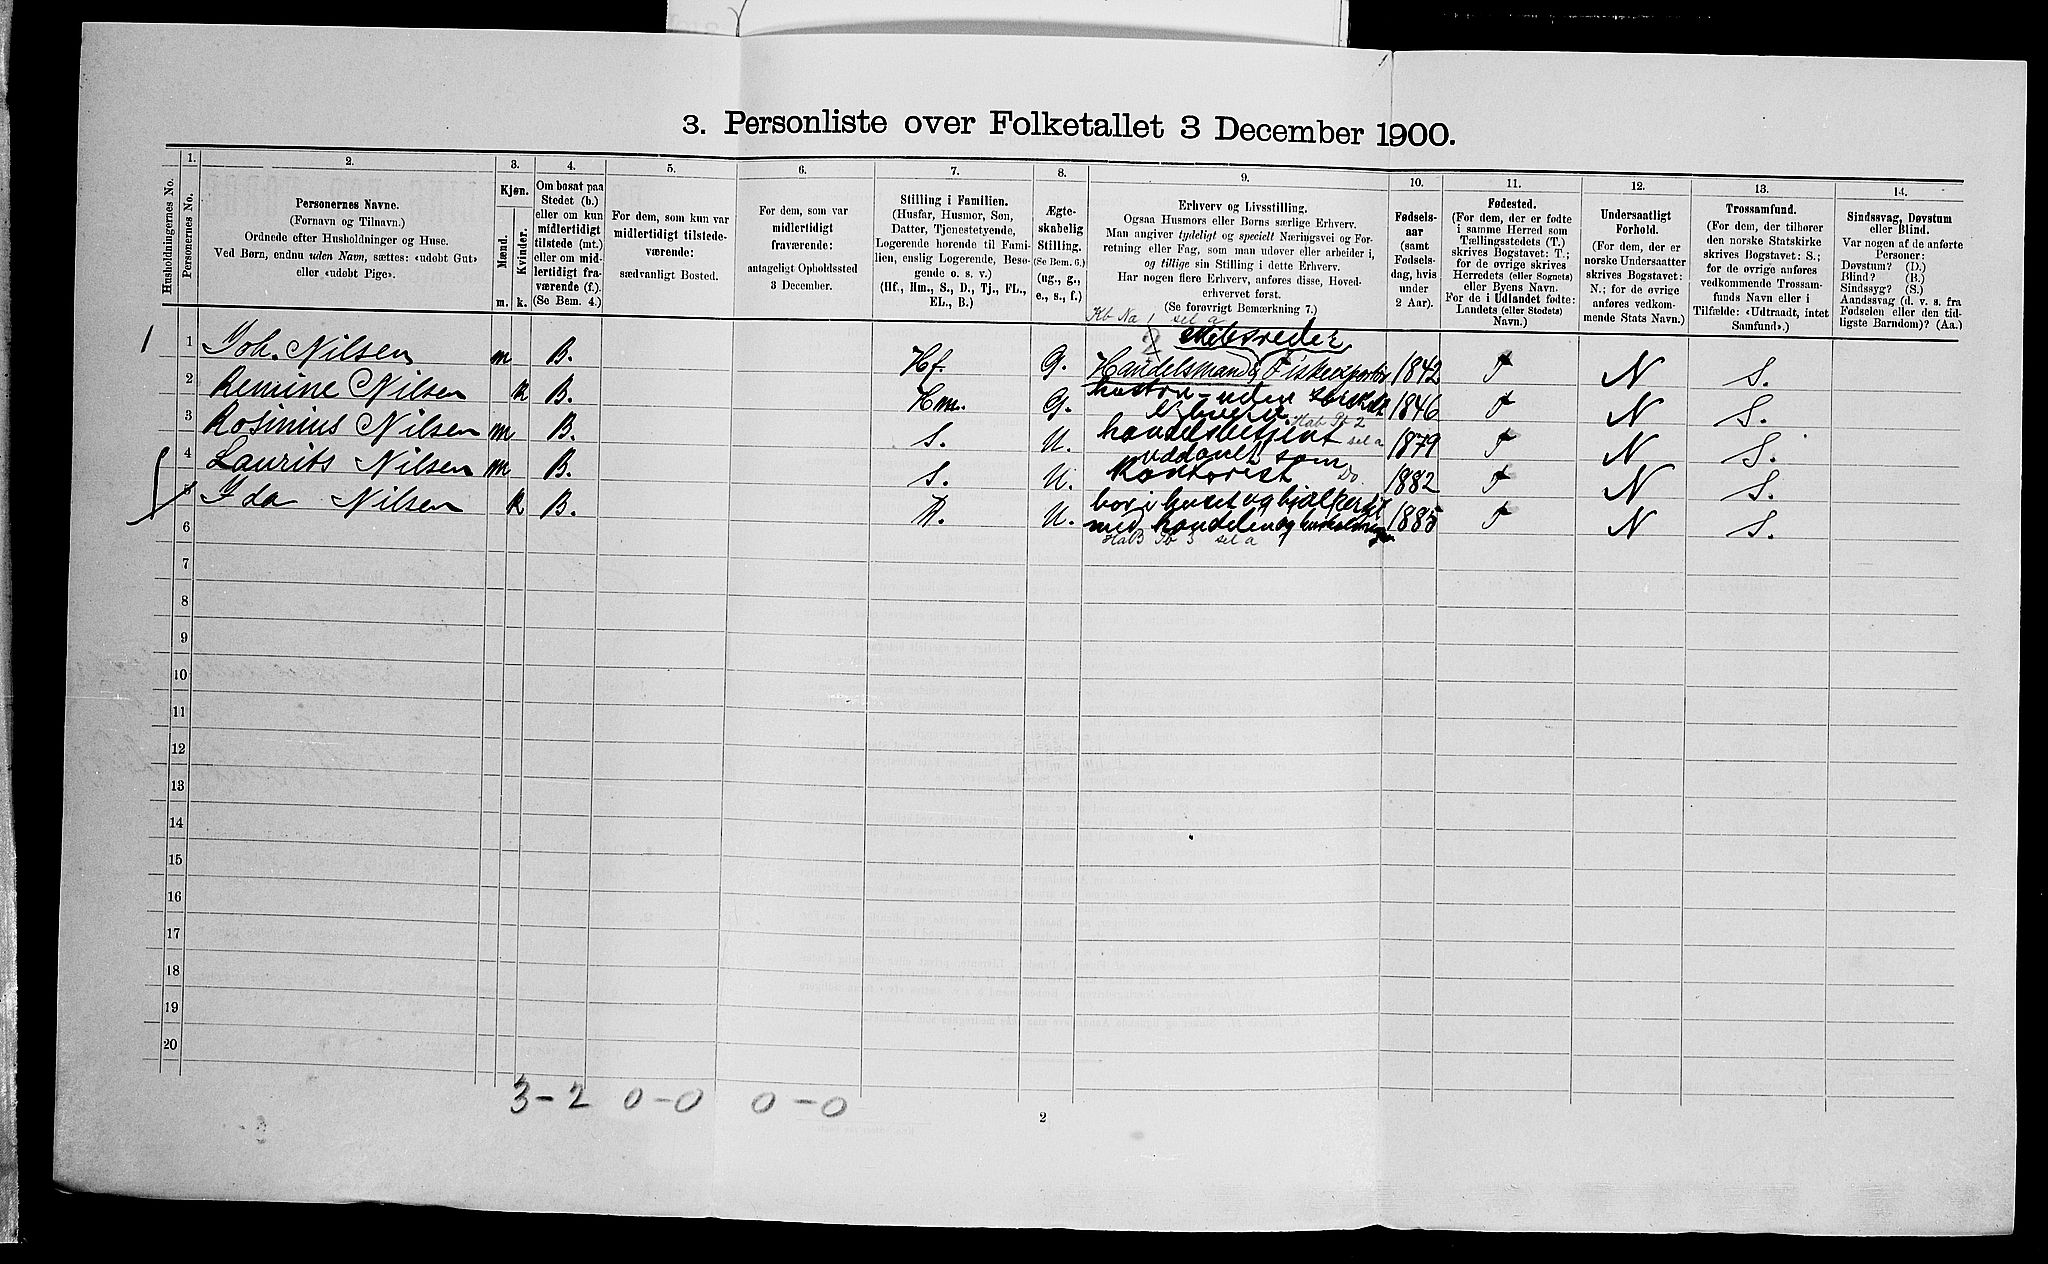 3. Personliste over Folketallet 3 December 1900.
Husholdningernes No.
1.
Personernes No.
2.
Personernes Navne.
(Fornavn og Tilnavn.)
Ordnede efter Husholdninger og Huse.
Ved Børn, endnu uden Navn, sættes: «udøbt Gut»
eller «udøbt Pige».
3.
Kjøn.
Mænd.
Kvinder.
m. k.
4.
Om bosat paa
Stedet (b.)
eller om kun
midlertidigt
tilstede (mt.)
eller om mid-
lertidigt fra-
værende (f.).
(Se Bem. 4.)
5.
For dem, som kun var
midlertidigt tilstede-
værende:
sædvanligt Bosted.
6.
For dem, som var
midlertidigt
fraværende:
antageligt Opholdssted
3 December.
7.
Stilling i Familien.
(Husfar, Husmor, Søn,
Datter, Tjenestetyende,
Logerende hørende til Fami-
lien, enslig Logerende, Besø-
gende o. s. v.)
(Hf., Hm., S., D., Tj., FL.,
EL., B.)
8.
Ægte-
skabelig
Stilling.
(Se Bem. 6.)
(ug., g.,
e., s., f.)
9.
Erhverv og Livsstilling.
Ogsaa Husmors eller Børns særlige Erhverv.
Man angiver tydeligt og specielt Næringsvei og For-
retning eller Fag, som man udøver eller arbeider i,
og tillige sin Stilling i dette Erhverv.
Har nogen flere Erhverv, anføres disse, Hoved-
erhvervet først.
(Se forøvrigt Bemærkning 7.)
10.
Fødsels-
aar
(samt
Fødsels-
dag, hvis
under
2 Aar).
11.
Fødested.
(For dem, der er fødte
i samme Herred som
Tællingsstedets (T.)
skrives Bogstavet: T.;
for de øvrige skrives
Herredets (eller Sognets)
eller Byens Navn.
For de i Udlandet fødte:
Landets (eller Stedets)
Navn.)
12.
Undersaatligt
Forhold.
(For dem, der er
norske Undersaatter
skrives Bogstavet:
N.; for de øvrige
anføres vedkom-
mende Stats Navn.)
13.
Trossamfund.
(For dem, der tilhører
den norske Statskirke
skrives Bogstavet: S.;
for de øvrige anføres
vedkommende Trossam-
funds Navn eller i
Tilfælde: «Udtraadt, intet
Samfund».)
14.
Sindssvag, Døvstum
eller Blind.
Var nogen af de anførte
Personer:
Døvstum? (D.)
Blind? (B.)
Sindssyg? (S.)
Aandssvag (d. v. s. fra
Fødselen eller den tid-
ligste Barndom)? (Aa.)
sel a
skibsreder
1 1 Joh. Nilsen m B. Hf. G. Handelsmand Fiskeexportør 1842 T N S.
2 Remine Nilsen k B. Hm. G. hustru uden særskilt 1846 T N S.
Erhverv
3 Rosinius Nilsen m B. S. U. handelsbetjent sel a 1879 T N S.
uddannet som
4 Laurits Nilsen m B. S. U. Kontorist Do. 1882 T N S.
5 Ida Nilsen k B. U. bor i huset og hjælper til 1885 T N S.
6 med handelen og husholdningen
sel a
7
8
9
10
11
12
13
14
15
16
17
18
19
20
3-2 0-0 0-0
2